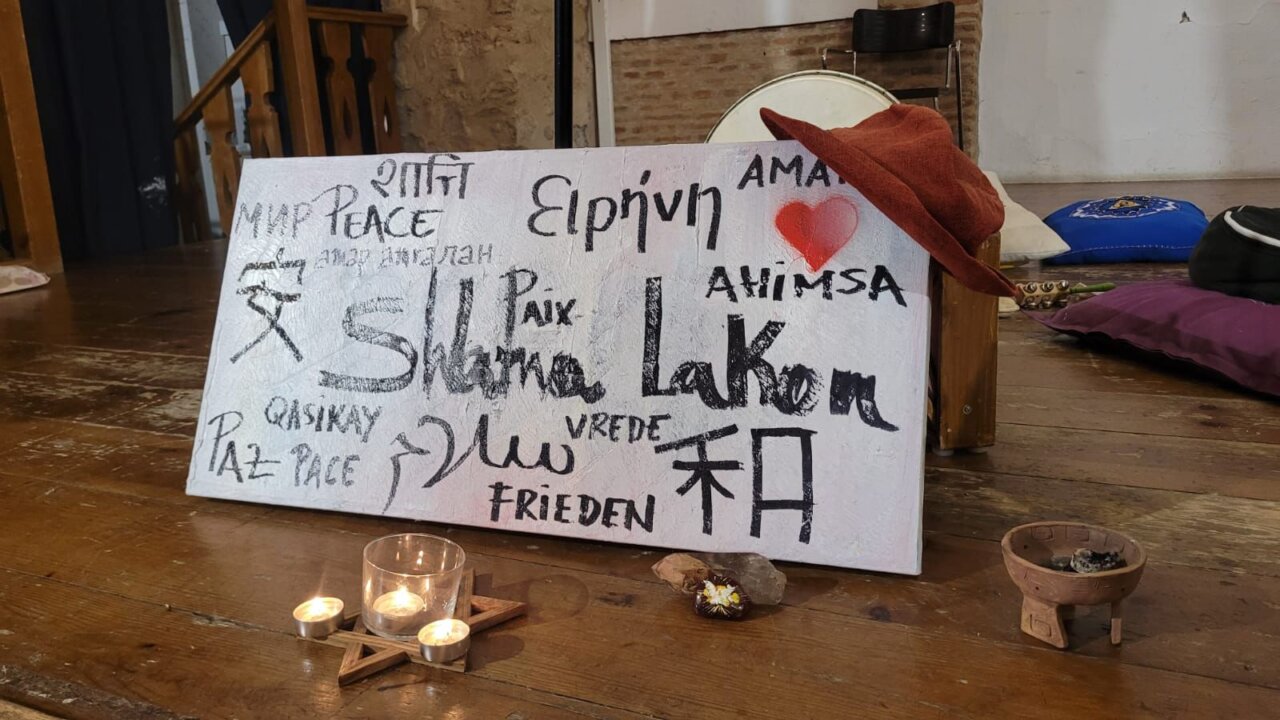 शान्ति
МИР PEACE
ειρήνη
AMA
амар амгалан
安
PAIX
AHIMSA
Shlama Lakon
QASIKAY
VREDE
PAZ
PACE
和
FRIEDEN